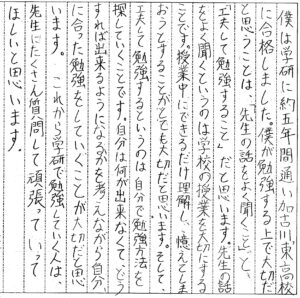 僕は学研に約五年間通い加古川東高校
に合格しました。僕が勉強する上で大切だ
と思うことは、「先生の話をよく聞くこと」と、
「工夫して勉強すること」だと思います。先生の話
をよく聞くというのは学校の授業を大切にする
ことです。授業中にできるだけ理解し、憶えてしま
おうとすることがとても大切だと思います。そして、
工夫して勉強するというのは自分で勉強方法を
探していくことです。自分は何が出来なくて、どう
すれば出来るようになるかを考えながら自分
に合った勉強をしていくことが大切だと思
います。 れから学研で勉強していく人は、
先生にたくさん質問して頑張っていって
ほしいと思います。